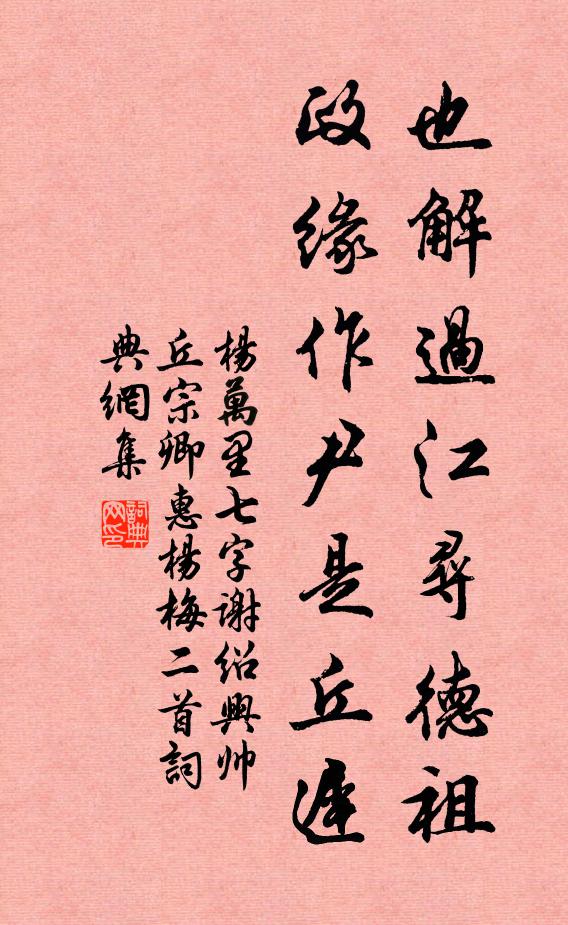 也解過江尋德祖
政緣作尹是丘遲
楊萬里七字謝紹興帅
丘宗卿惠楊梅二首詞
典網集
詞典網印